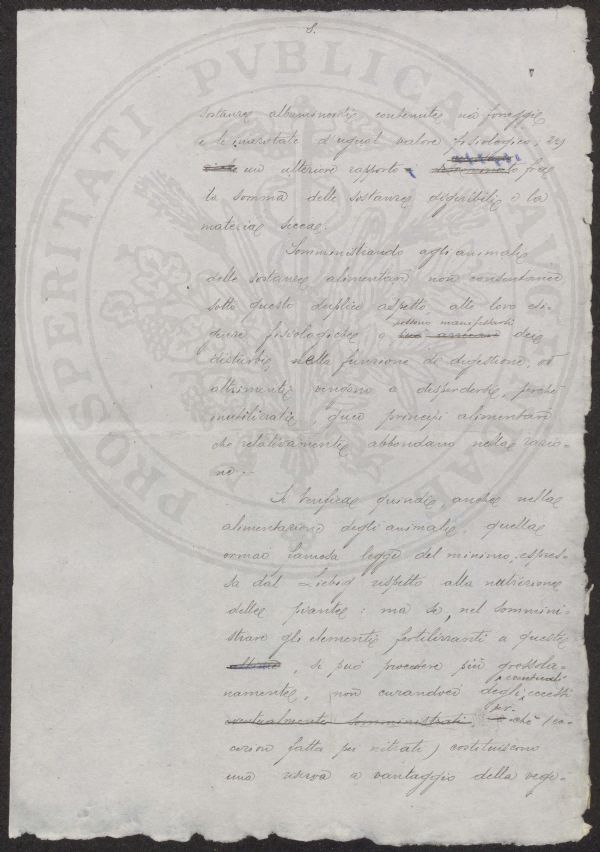 8.
sostanze albuminoidi contenute nei foraggi
e le quantità d'ugual valore fisiologico; ed
un ulteriore rapporto fra
la somma delle sostanze digeribili e la
materia secca.
Somministrando agli animali
delle sostanze alimentari non consentanee
sotto questo duplice aspetto alle loro esi-
possono manifestarsi
genze fisiologiche o dei
disturbi nella funzione di digestione, od
altrimenti vengono a disperdersi, perchè
inutilizzati, quei principi alimentari
che relativamente abbondano nella razio-
ne.-
Si verifica quindi, anche nella
alimentazione degli animali, quella
ormai famosa legge del minimo, espres-
sa dal Liebig rispetto alla nutrizione
delle piante: ma se, nel sommini-
strare gli elementi fertilizzanti a queste
, si può procedere più grossola-
eventuali
namente, non curandoci degli eccessi
eventualmente somministrati, per-
chè (ec-
cezion fatta pei nitrati) costituiscono
una riserva a vantaggio della vege-
PROSPERITATI PVBLICAE AVGENDAE